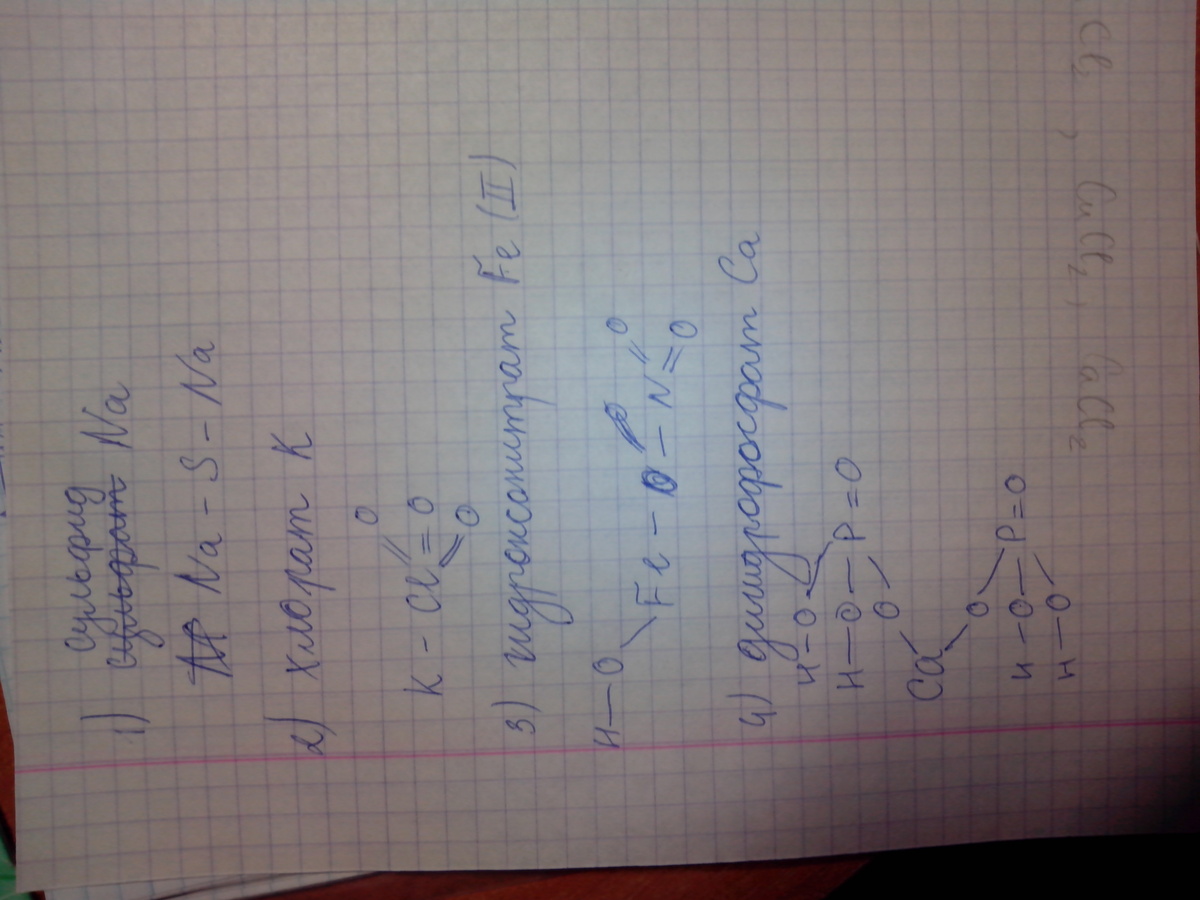 сульфид
1) сульфат Na
Na - S - Na
2) Хлорат K
O
K - Cl = O
O
3) гидроксонитрат Fe (II)
H — O O
Fe - O - N = O
4) дигидрофосфат Ca
H - O
H — O — P = O
O
Ca
O
H - O — P = O
H - O
Cl₂, CuCl₂, CaCl₂